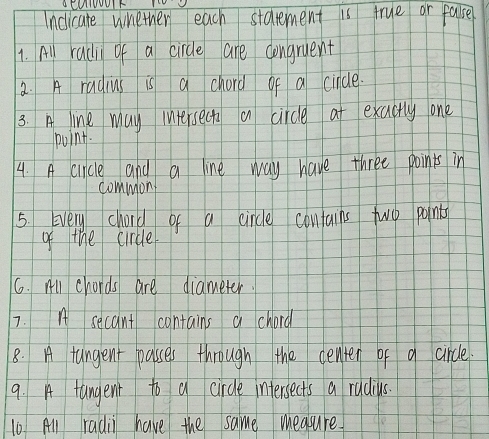 Indicate whether each statement is true or false.
1. All radii of a circle are congruent
2. A radius is a chord of a circle.
3. A line may intersect a circle at exactly one
point.
4. A circle and a line may have three points in
common.
5. Every chord of a circle contains two points
of the circle.
6. All chords are diameter.
7. A secant contains a chord
8. A tangent passes through the center of a circle.
9. A tangent to a circle intersects a radius.
10. All radii have the same measure.